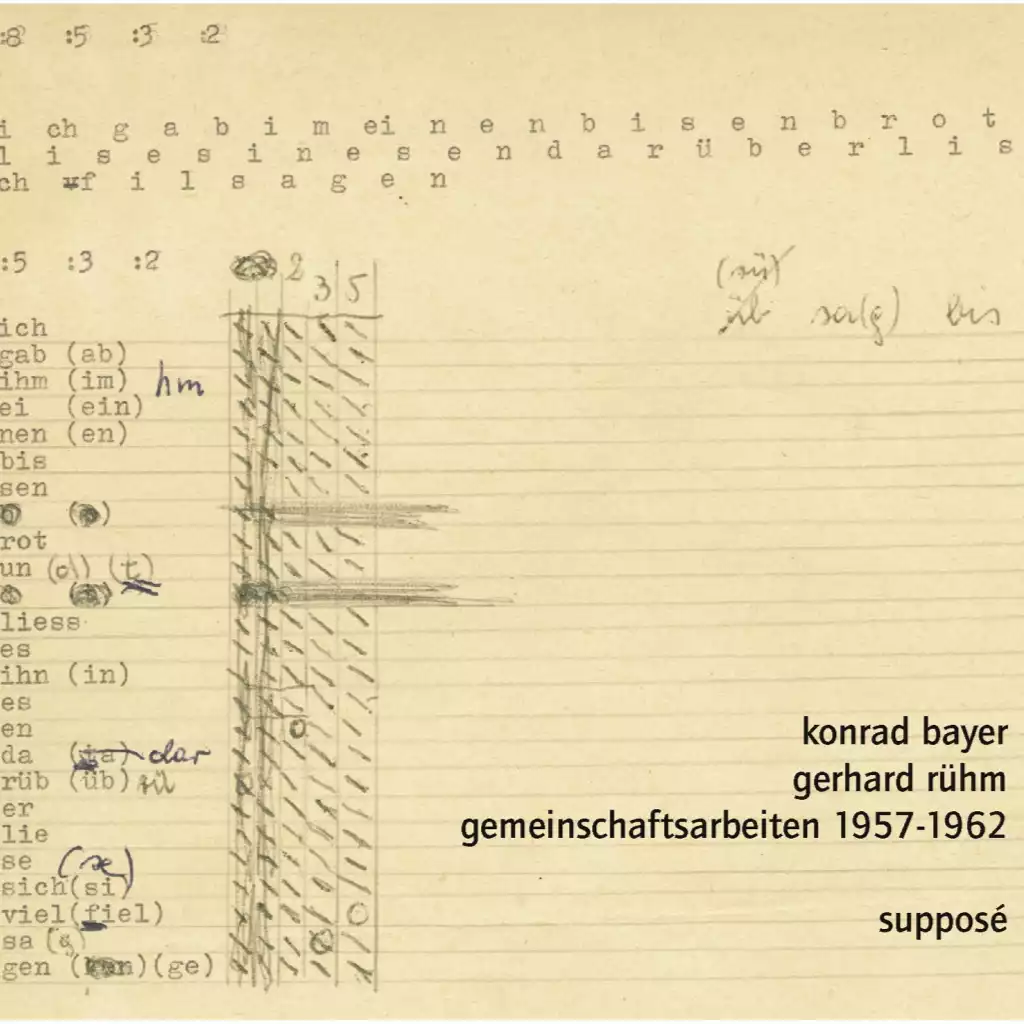 :8 :5 :3 :2
i ch g a b i m ei n e n b i s e n b r o t
l i s e s i n e s e n d a r ü b e r l i s
ch f i l s a g e n
:5 :3 :2
2 3 5
(sü)
üb sa(g) bis
ich
gab (ab)
ihm (im) hm
ei (ein)
nen (en)
bis
sen
rot
un (o) (t)
liess
es
ihn (in)
es
en
da dar
rüb (üb) sü
er
lie
se (se)
sich(si)
viel(fiel)
sa (g)
gen (ge)
konrad bayer
gerhard rühm
gemeinschaftsarbeiten 1957-1962
supposé